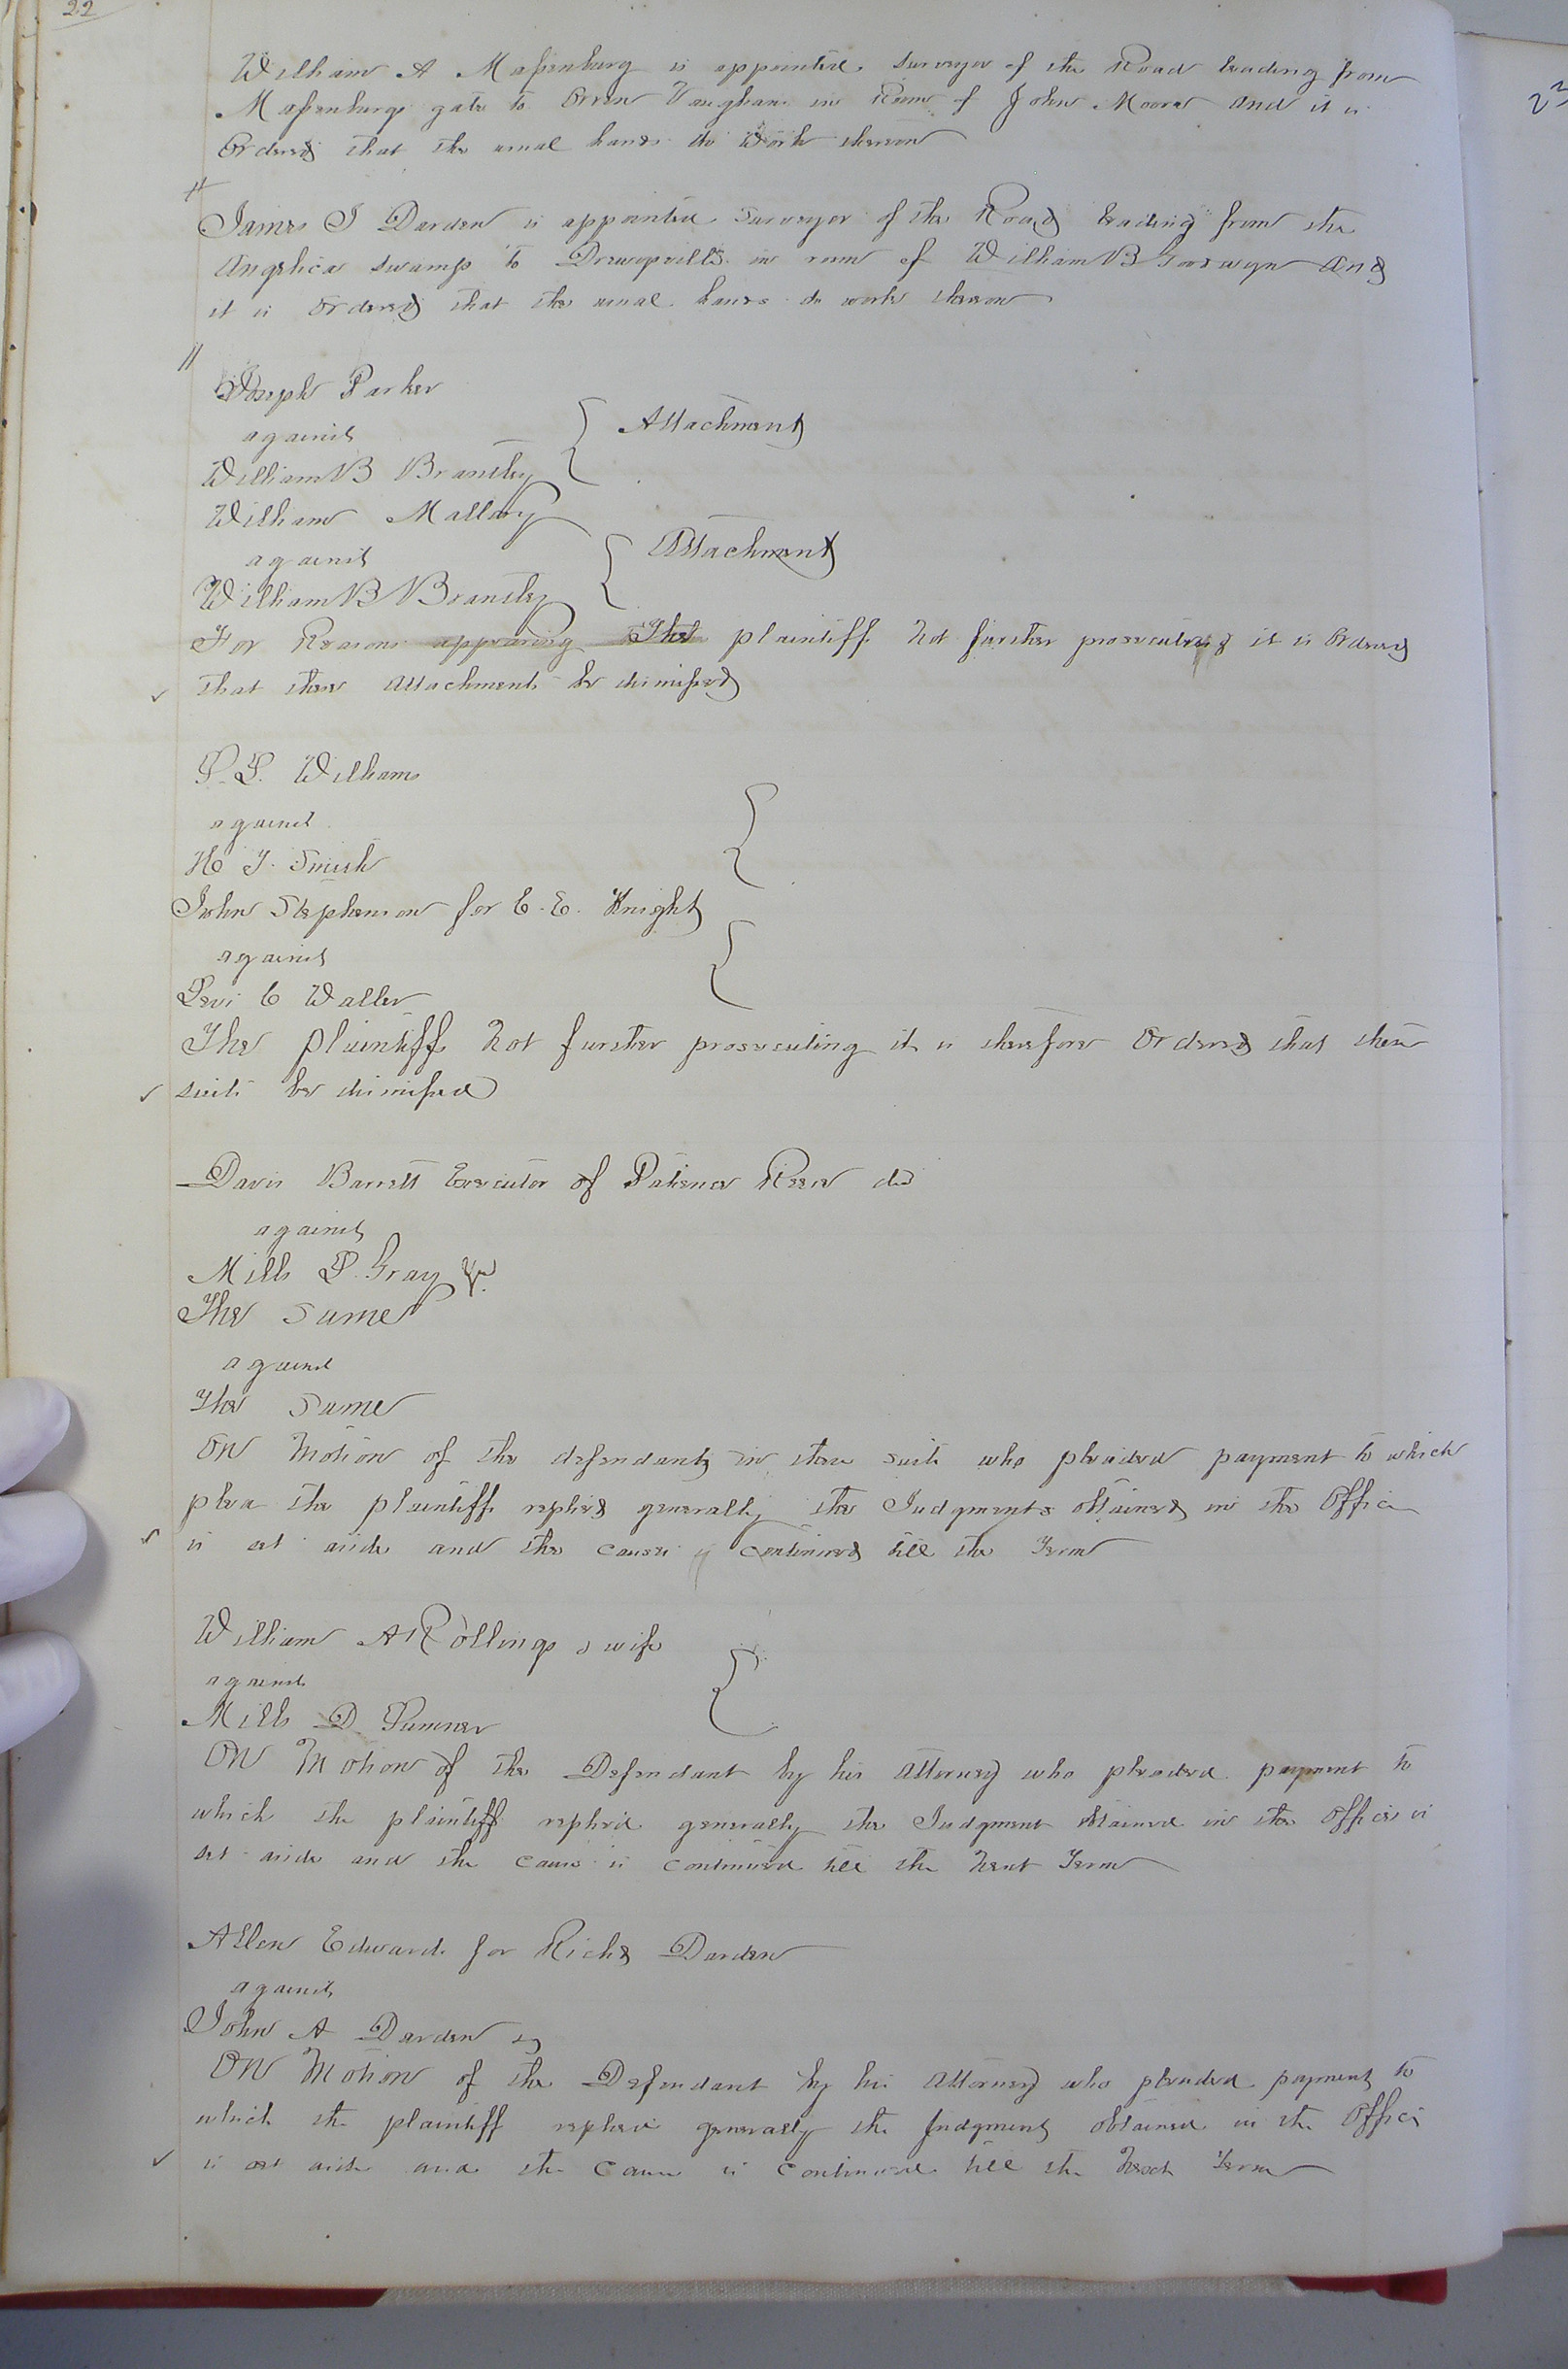 22
William A Massenburg is appointed Surveyor of the Road leading from
Massenburgs gate to Orren Vaughans in Room of John Moore and it is
Ordered that the usual hands do Work thereon
James J Darden is appointed Surveyor of the Road leading from the
Angelica Swamp to Drewryville in room of William B Goodwyn and
it is Ordered that the usual hands do work thereon
Joseph Parker
against
William B Brantley
Attachment
William Mallory
against
William B Brantley
Attachment
For Reasons appearing The plaintiff not further prosecuting it is Ordered
that these Attachments be dismissed
against
H J. Smith
John Stephenson for E. E. Knight
against
Levi C Waller
The plaintiff not further prosecuting it is therefore Ordered that these
suits be dismissed
Davis Barrett Executor of Patience Reese dcd
against
Mills L. Gray
The Same
against
The Same
On Motion of the defendants in these suits who pleaded payment to which
plea the plaintiff replied generally the Judgments obtained in the Office
is set aside and the causes is continued till the Term
William A Rollings & wife
against
Mills D
On Motion of the Defendant by his Attorney who pleaded payment to
which the plaintiff replied generally the Judgment obtained in the Office is
set aside and the cause is continued till the next Term
Allen Edwards for Richd Darden
against
John A Darden
On Motion of the Defendant by his Attorney who pleaded payment to
which the plaintiff replied generally the Judgment obtained in the Office
is set aside and the cause is continued till the next Term